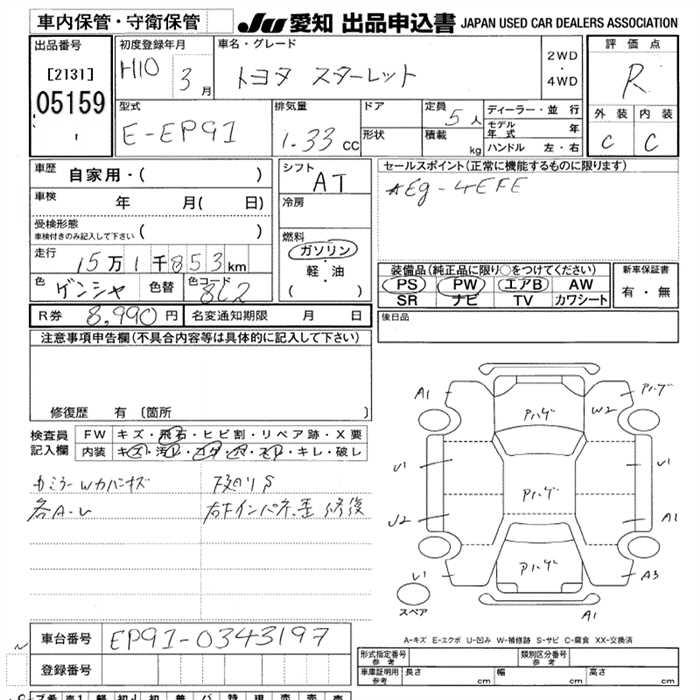 車内保管・守衛保管
JU 愛知 出品申込書 JAPAN USED CAR DEALERS ASSOCIATION
出品番号
[2131]
05159
初度登録年月
H10 3月
車名・グレード
トヨタ スターレット
2WD
・
4WD
評価点
R
外装 内装
C C
型式
E-EP91
排気量
1.33 cc
ドア
形状
定員 5人
積載 kg
ディーラー・並行
モデル年式 年
ハンドル 左・右
車歴 自家用・( )
車検 年 月( 日)
受検形態
車検付きのみ記入して下さい ( )
走行 15万1千853km
色 ゲンシャ 色替 色コード 8L2
シフト
AT
冷房
燃料
ガソリン
・
軽・油
( )
セールスポイント(正常に機能するものに限ります)
*Eg-4EFE
装備品(純正品に限り○をつけてください)
PS PW エアB AW
SR ナビ TV カワシート
新車保証書
有・無
R券 8,990円 名変通知期限 月 日
後日品
注意事項申告欄(不具合内容等は具体的に記入して下さい)
修復歴 有 〔箇所 〕
検査員記入欄
FW キズ・飛石・ヒビ割・リペア跡・X要
内装 キズ・汚レ・コゲ・穴・スレ・キレ・破レ
カミラーWカバーキズ
各A-U
下廻りS
右下インパネ歪 修後
A1
アハゲ
W2
アハゲ
U1
U1
アハゲ
U2
A1
アハゲ
U1
A3
A1
スペア
A-キズ E-エクボ U-凹み W-補修跡 S-サビ C-腐食 XX-交換済
車台番号 EP91-0343197
登録番号
形式指定番号 参考
類別区分番号 参考
車庫証明用 参考 長さ cm 幅 cm 高さ cm